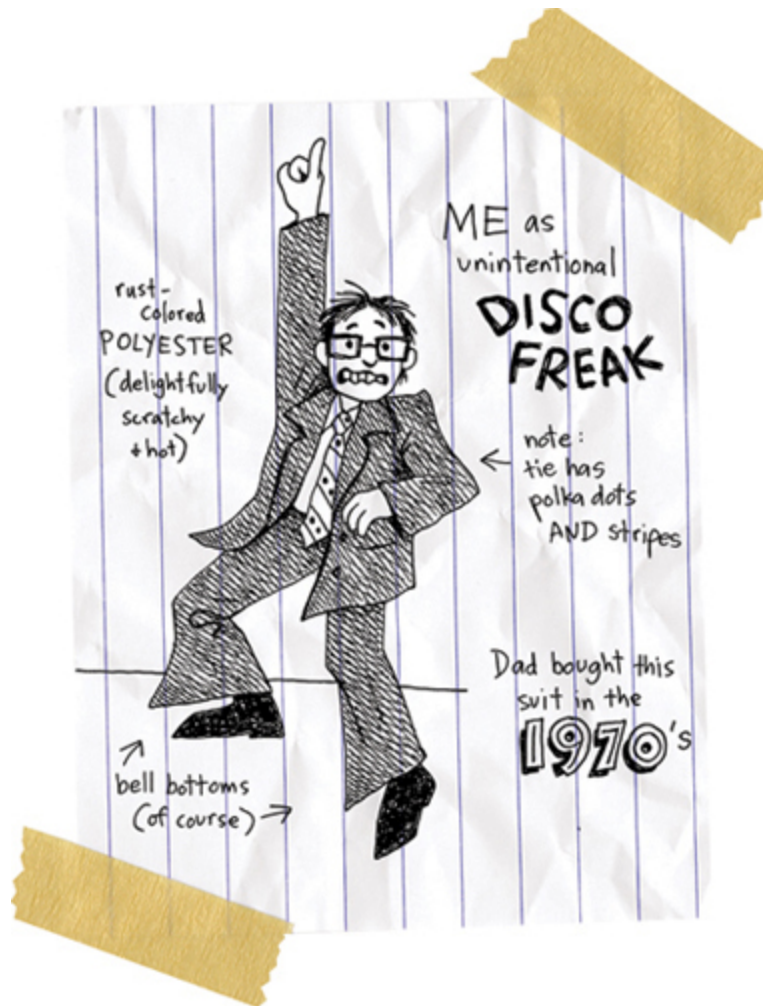 ME as
unintentional
DISCO
FREAK
rust-
colored
POLYESTER
(delightfully
scratchy
+ hot)
note:
tie has
polka dots
AND stripes
Dad bought this
suit in the
1970's
bell bottoms
(of course)